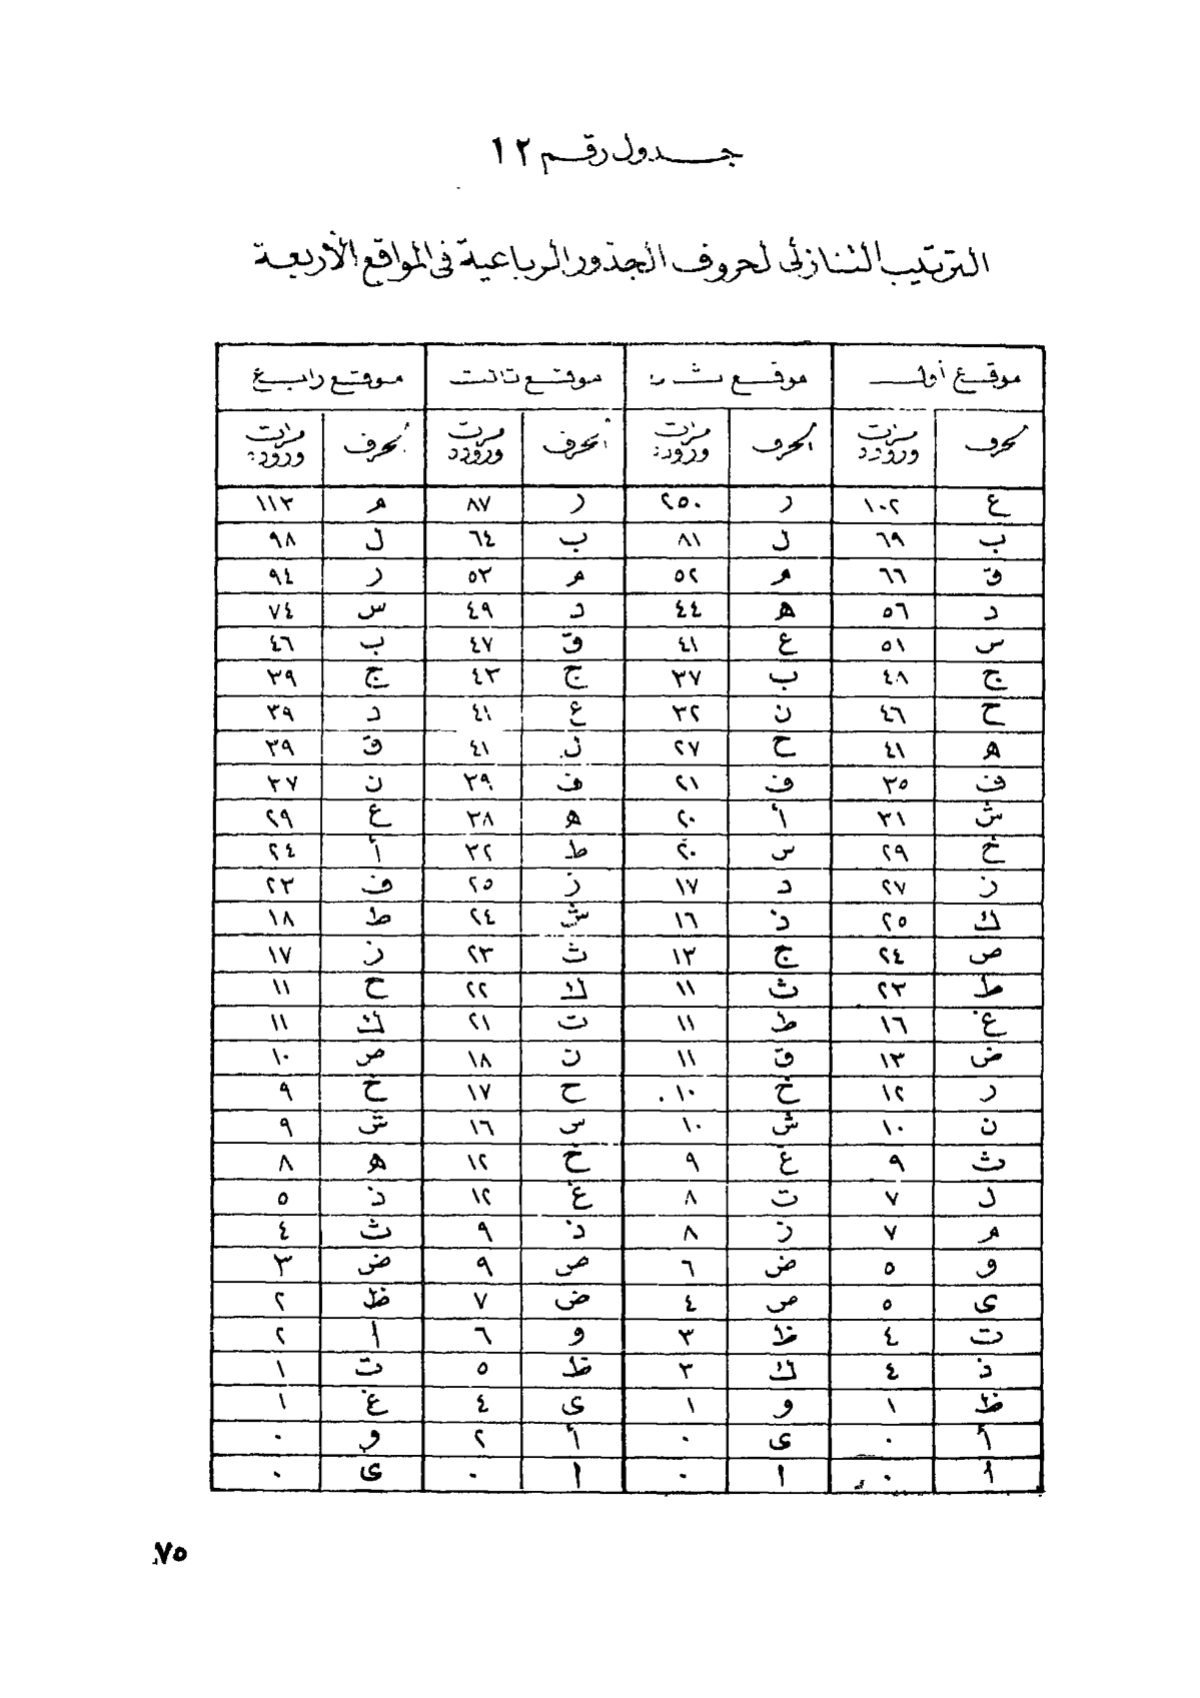 جدول رقم ١٢
الترتيب التنازلي لحروف الجذور الرباعية في المواقع الأربعة
موقع أول موقع ثان موقع ثالث موقع رابع
الحرف مرات وروده الحرف مرات وروده الحرف مرات وروده الحرف مرات وروده
ع ١٠٢ ر ٢٥٠ ر ٨٧ م ١١٣
ب ٦٩ ل ٨١ ب ٦٤ ل ٩٨
ق ٦٦ م ٥٢ م ٥٣ ر ٩٤
د ٥٦ ه ٤٤ د ٤٩ س ٧٤
س ٥١ ع ٤١ ق ٤٧ ب ٤٦
ج ٤٨ ب ٣٧ ج ٤٣ ج ٣٩
ح ٤٦ ن ٣٢ ع ٤١ د ٣٩
ه ٤١ ح ٢٧ ل ٤١ ق ٣٩
ف ٣٥ ف ٢١ ف ٣٩ ن ٣٧
ش ٣١ أ ٢٠ ه ٣٨ ع ٢٩
خ ٢٩ س ٢٠ ط ٣٢ أ ٢٤
ز ٢٧ د ١٧ ز ٢٥ ف ٢٣
ك ٢٥ ذ ١٦ ش ٢٤ ط ١٨
ص ٢٤ ج ١٣ ث ٢٣ ز ١٧
ط ٢٣ ث ١١ ك ٢٢ ح ١١
غ ١٦ ط ١١ ت ٢١ ك ١١
ض ١٣ ق ١١ ن ١٨ ص ١٠
ر ١٢ خ ١٠ ح ١٧ خ ٩
ن ١٠ ش ١٠ س ١٦ ش ٩
ث ٩ غ ٩ خ ١٢ ه ٨
ل ٧ ت ٨ غ ١٢ ذ ٥
م ٧ ز ٨ ذ ٩ ث ٤
و ٥ ض ٦ ص ٩ ض ٣
ى ٥ ص ٤ ض ٧ ظ ٢
ت ٤ ظ ٣ و ٦ ا ٢
ذ ٤ ك ٣ ظ ٥ ت ١
ظ ١ و ١ ى ٤ غ ١
أ ٠ ى ٠ أ ٢ و ٠
ا ٠ ا ٠ ا ٠ ى ٠
٧٥